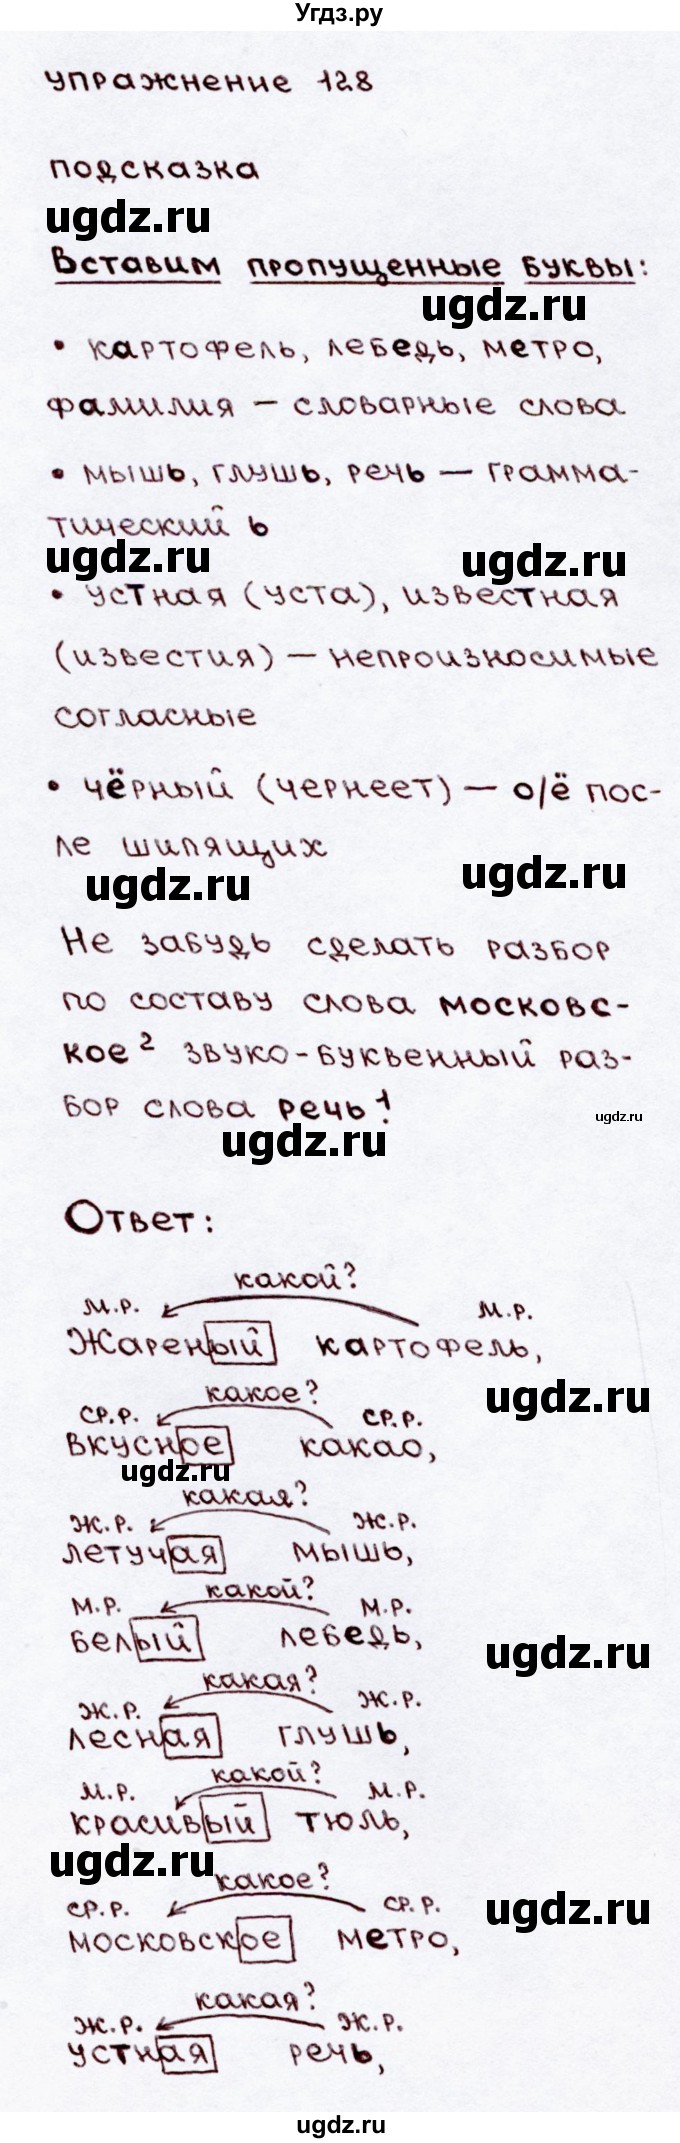 Угдз.ру
упражнение 128
подсказка
ugdz.ru
Вставим пропущенные буквы:
ugdz.ru
• картофель, лебедь, метро,
фамилия – словарные слова
• мышь, глушь, речь – грамма-
тический ь
ugdz.ru
ugdz.ru
• устная (уста), известная
(известия) – непроизносимые
согласные
• чёрный (чернеет) – о/ё пос-
ле шипящих
ugdz.ru
ugdz.ru
Не забудь сделать разбор
по составу слова московс-
кое² звуко-буквенный раз-
бор слова речь¹!
ugdz.ru
ugdz.ru
Ответ:
какой?
м.р. м.р.
Жареный картофель,
ugdz.ru
какое?
ср.р. ср.р.
вкусное какао,
ugdz.ru
какая?
ж.р. ж.р.
летучая мышь,
какой?
м.р. м.р.
белый лебедь,
ugdz.ru
какая?
ж.р. ж.р.
лесная глушь,
какой?
м.р. м.р.
красивый тюль,
ugdz.ru
какое?
ugdz.ru
ср.р. ср.р.
московское метро,
какая?
ж.р. ж.р.
устная речь,
ugdz.ru